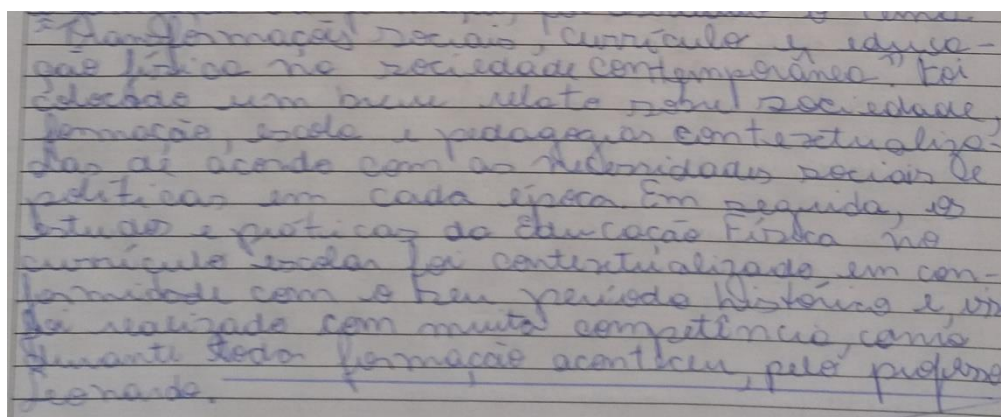 "Transformações sociais, currículo e educa-
ção física na sociedade contemporânea" Foi
colocado um breve relato sobre sociedade,
formação, escola e pedagogias contextualiza-
das de acordo com as necessidades sociais e
políticas em cada época. Em seguida, os
estudos e práticas da Educação Física no
currículo escolar foi contextualizado em con-
formidade com o seu período histórico e,
foi realizado com muita competência, como
durante toda formação aconteceu, pelo professo
Leonardo.